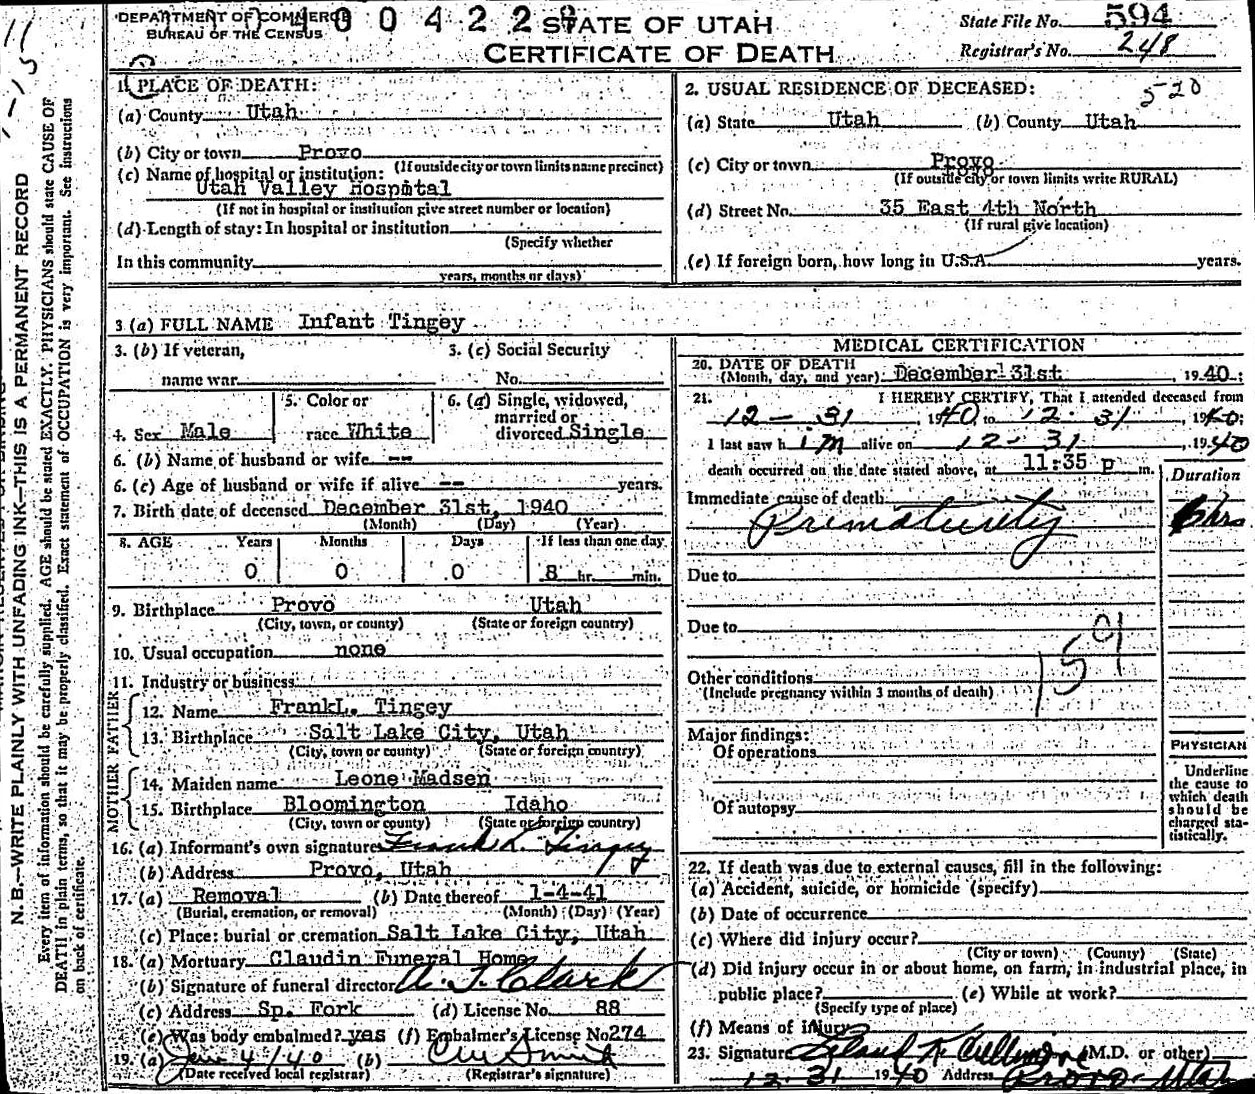 DEPARTMENT OF COMMERCE
BUREAU OF THE CENSUS
0 0 4 2 2
STATE OF UTAH
CERTIFICATE OF DEATH
State File No. 594
Registrar's No. 248
N. B.—WRITE PLAINLY WITH UNFADING INK—THIS IS A PERMANENT RECORD
Every item of information should be carefully supplied. AGE should be stated EXACTLY. PHYSICIANS should state CAUSE OF
DEATH in plain terms, so that it may be properly classified. Exact statement of OCCUPATION is very important. See instructions
on back of certificate.
1. PLACE OF DEATH:
(a) County Utah
(b) City or town Provo
(If outside city or town limits name precinct)
(c) Name of hospital or institution:
Utah Valley Hospital
(If not in hospital or institution give street number or location)
(d) Length of stay: In hospital or institution
(Specify whether
In this community
years, months or days)
2. USUAL RESIDENCE OF DECEASED:
520
(a) State Utah (b) County Utah
(c) City or town Provo
(If outside city or town limits write RURAL)
(d) Street No. 35 East 4th North
(If rural give location)
(e) If foreign born, how long in U.S.A. years.
3 (a) FULL NAME Infant Tingey
3. (b) If veteran, 3. (c) Social Security
name war No.
4. Sex Male
5. Color or
race White
6. (a) Single, widowed,
married or
divorced Single
6. (b) Name of husband or wife --
6. (c) Age of husband or wife if alive -- years.
7. Birth date of deceased December 31st, 1940
(Month) (Day) (Year)
8. AGE Years Months Days If less than one day
0 0 0 8 hr. min.
9. Birthplace Provo Utah
(City, town, or county) (State or foreign country)
10. Usual occupation none
11. Industry or business
FATHER
12. Name FrankL. Tingey
13. Birthplace Salt Lake City, Utah
(City, town or county) (State or foreign country)
MOTHER
14. Maiden name Leone Madsen
15. Birthplace Bloomington Idaho
(City, town or county) (State or foreign country)
16. (a) Informant's own signature Frank L. Tingey
(b) Address Provo, Utah
17. (a) Removal (b) Date thereof 1-4-41
(Burial, cremation, or removal) (Month) (Day) (Year)
(c) Place: burial or cremation Salt Lake City, Utah
18. (a) Mortuary Claudin Funeral Home
(b) Signature of funeral director A. J. Clark
(c) Address Sp. Fork (d) License No. 88
(e) Was body embalmed? yes (f) Embalmer's License No 274
19. (a) Jan 4/40 (b) Smith
(Date received local registrar) (Registrar's signature)
MEDICAL CERTIFICATION
20. DATE OF DEATH
(Month, day, and year) December 31st, 1940;
21. I HEREBY CERTIFY, That I attended deceased from
12 - 31, 1940, to 12 - 31, 1940;
I last saw him alive on 12 - 31, 1940
death occurred on the date stated above, at 11:35 p m.
Duration
Immediate cause of death
Prematurity hrs
Due to
Due to
159
Other conditions
(Include pregnancy within 3 months of death)
Major findings:
Of operations
Of autopsy
PHYSICIAN
Underline
the cause to
which death
should be
charged sta-
tistically.
22. If death was due to external causes, fill in the following:
(a) Accident, suicide, or homicide (specify)
(b) Date of occurrence
(c) Where did injury occur?
(City or town) (County) (State)
(d) Did injury occur in or about home, on farm, in industrial place, in
public place? (e) While at work?
(Specify type of place)
(f) Means of injury
23. Signature Leland K. Cullimore (M.D. or other)
12 - 31 1940 Address Provo - Utah